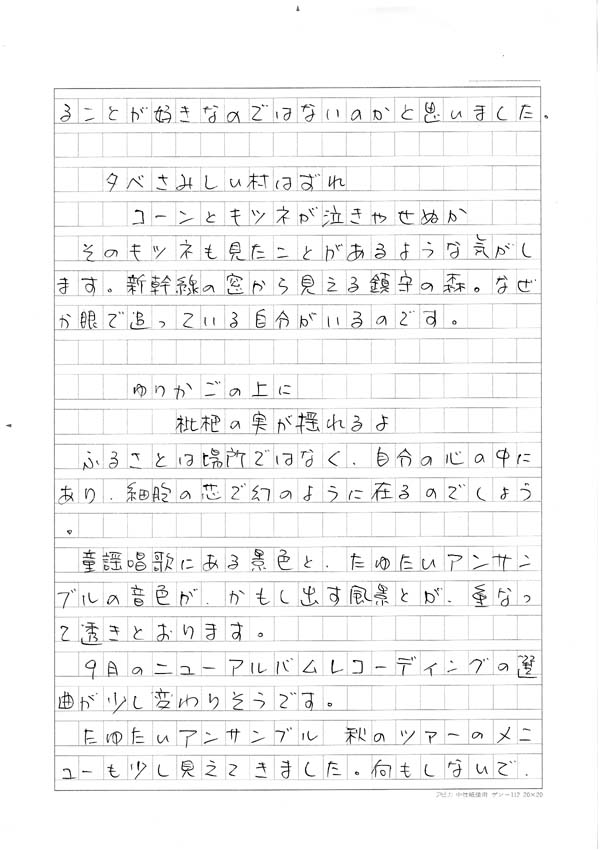 ることが好きなのではないのかと思いました。
夕べさみしい村はずれ
コーンとキツネが泣きやせぬか
そのキツネも見たことがあるような気がし
ます。新幹線の窓から見える鎮守の森。なぜ
か眼で追っている自分がいるのです。
ゆりかごの上に
枇杷の実が揺れるよ
ふるさとは場所ではなく、自分の心の中に
あり、細胞の芯で幻のように在るのでしょう
。
童謡唱歌にある景色と、たゆたいアンサン
ブルの音色が、かもし出す風景とが、重なっ
て透きとおります。
9月のニューアルバムレコーディングの選
曲が少し変わりそうです。
たゆたいアンサンブル 秋のツアーのメニ
ューも少し見えてきました。何もしないで、
アピカ 中性紙使用 ゲンー112 20×20